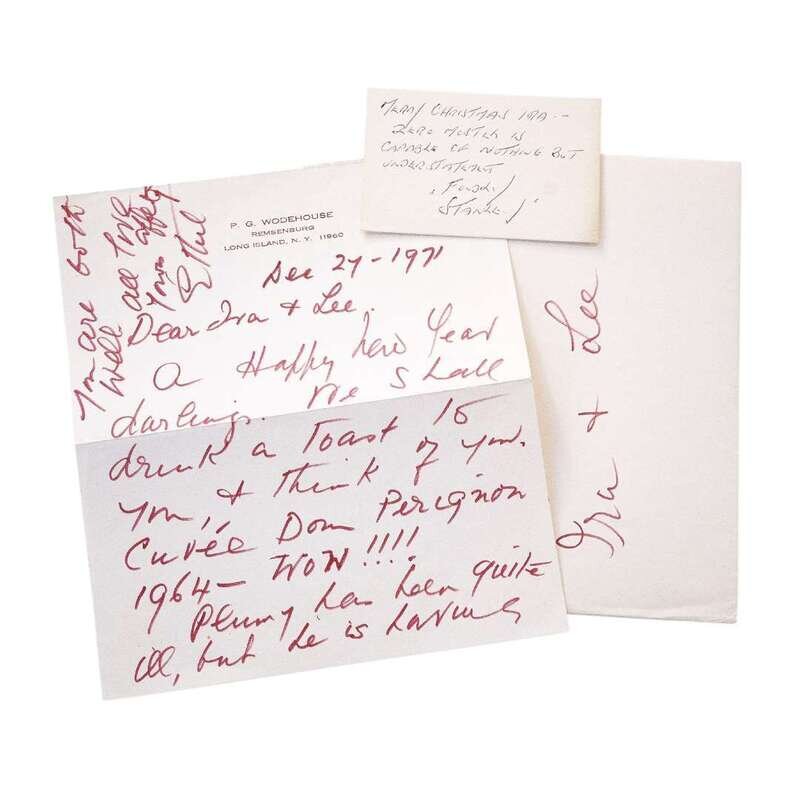 MERRY CHRISTMAS IRA --
ZERO MOSTEL IS
CAPABLE OF NOTHING BUT
UNDERSTATEMENT
FONDLY
STANLEY
P. G. WODEHOUSE
REMSENBURG
LONG ISLAND, N. Y. 11960
Dec 27-1971
Dear Ira & Lee.
A Happy New Year
darlings. We shall
drink a Toast to
you, & think of you.
Cuvée Dom Perignon
1964 - WOW !!!!
Plummy has been quite
ill, but he is having
You are both
well all
Your
Ethel
Ira & Lee